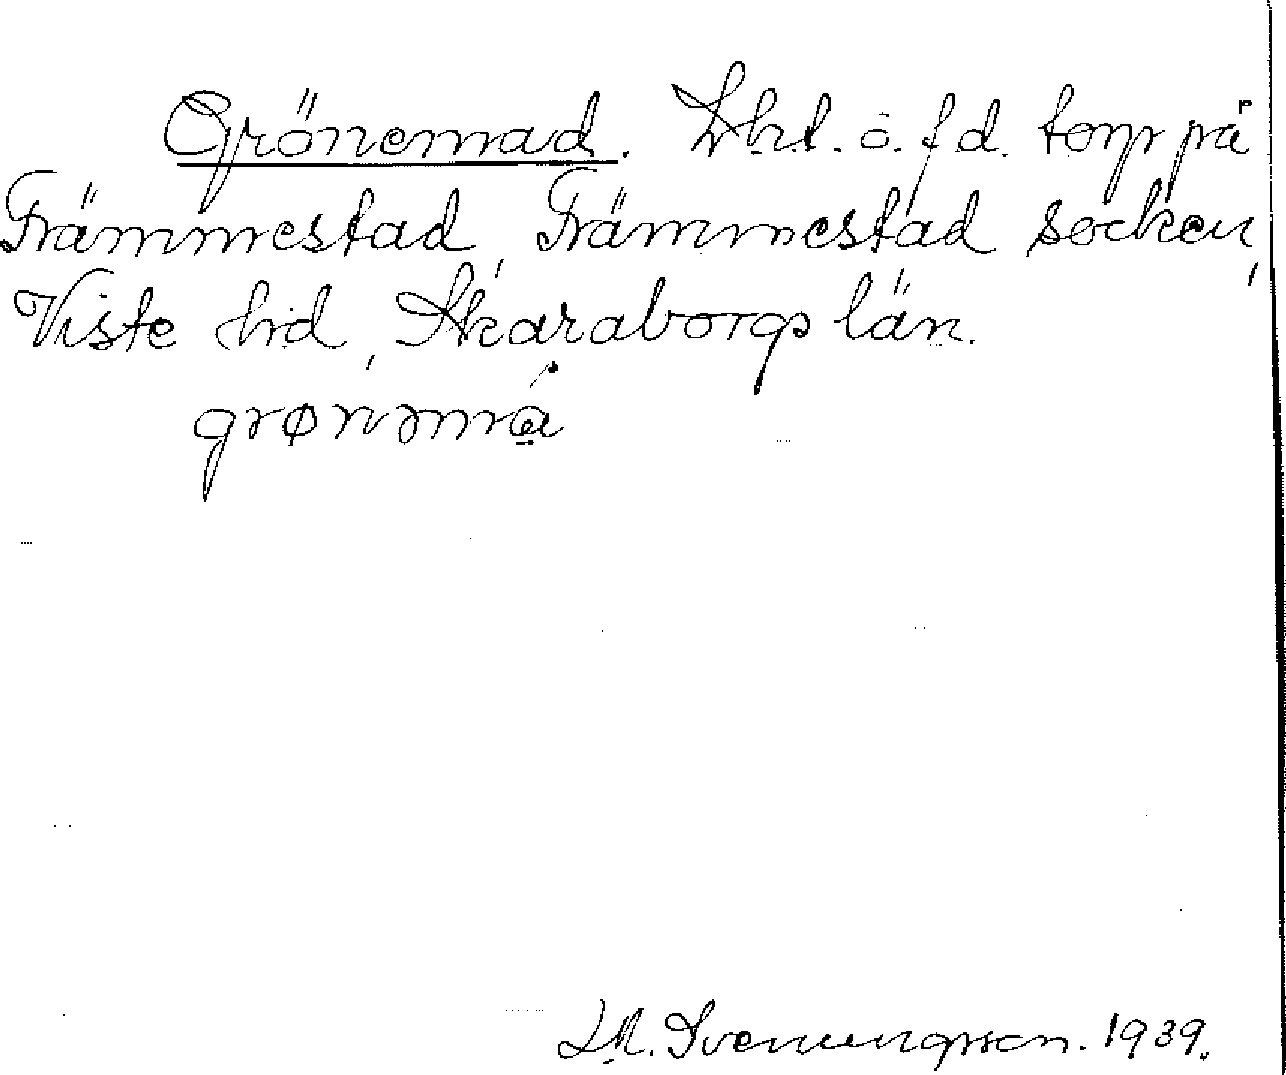 Grönemad. Lht. o. f d. torp på
Främmestad, Främmestad socken,
Viste hd, Skaraborgs län.
grønəma
Svenungsson. 1939.